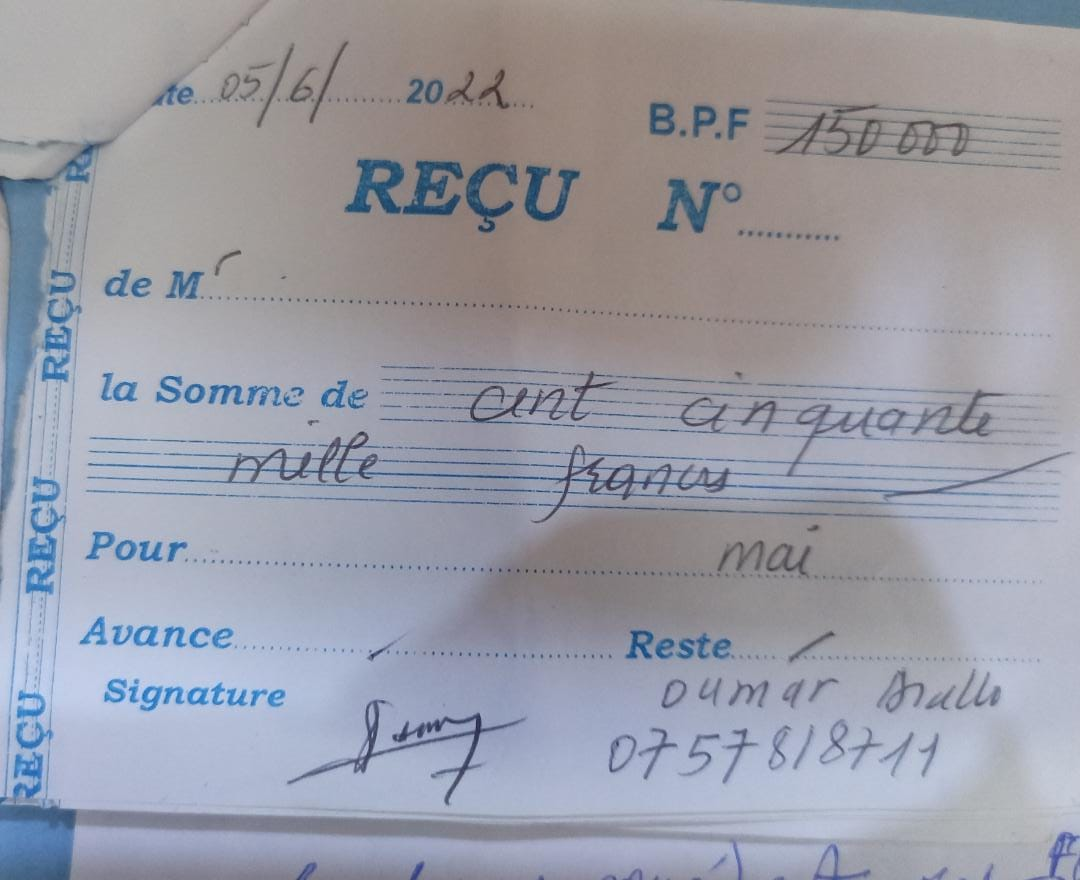 te 05/6/ 2022
B.P.F 150 000
REÇU N°
de Mr
la Somme de cent cinquante
mille francs
Pour mai
Avance / Reste /
Signature Oumar Diallo
0757818711
REÇU REÇU REÇU